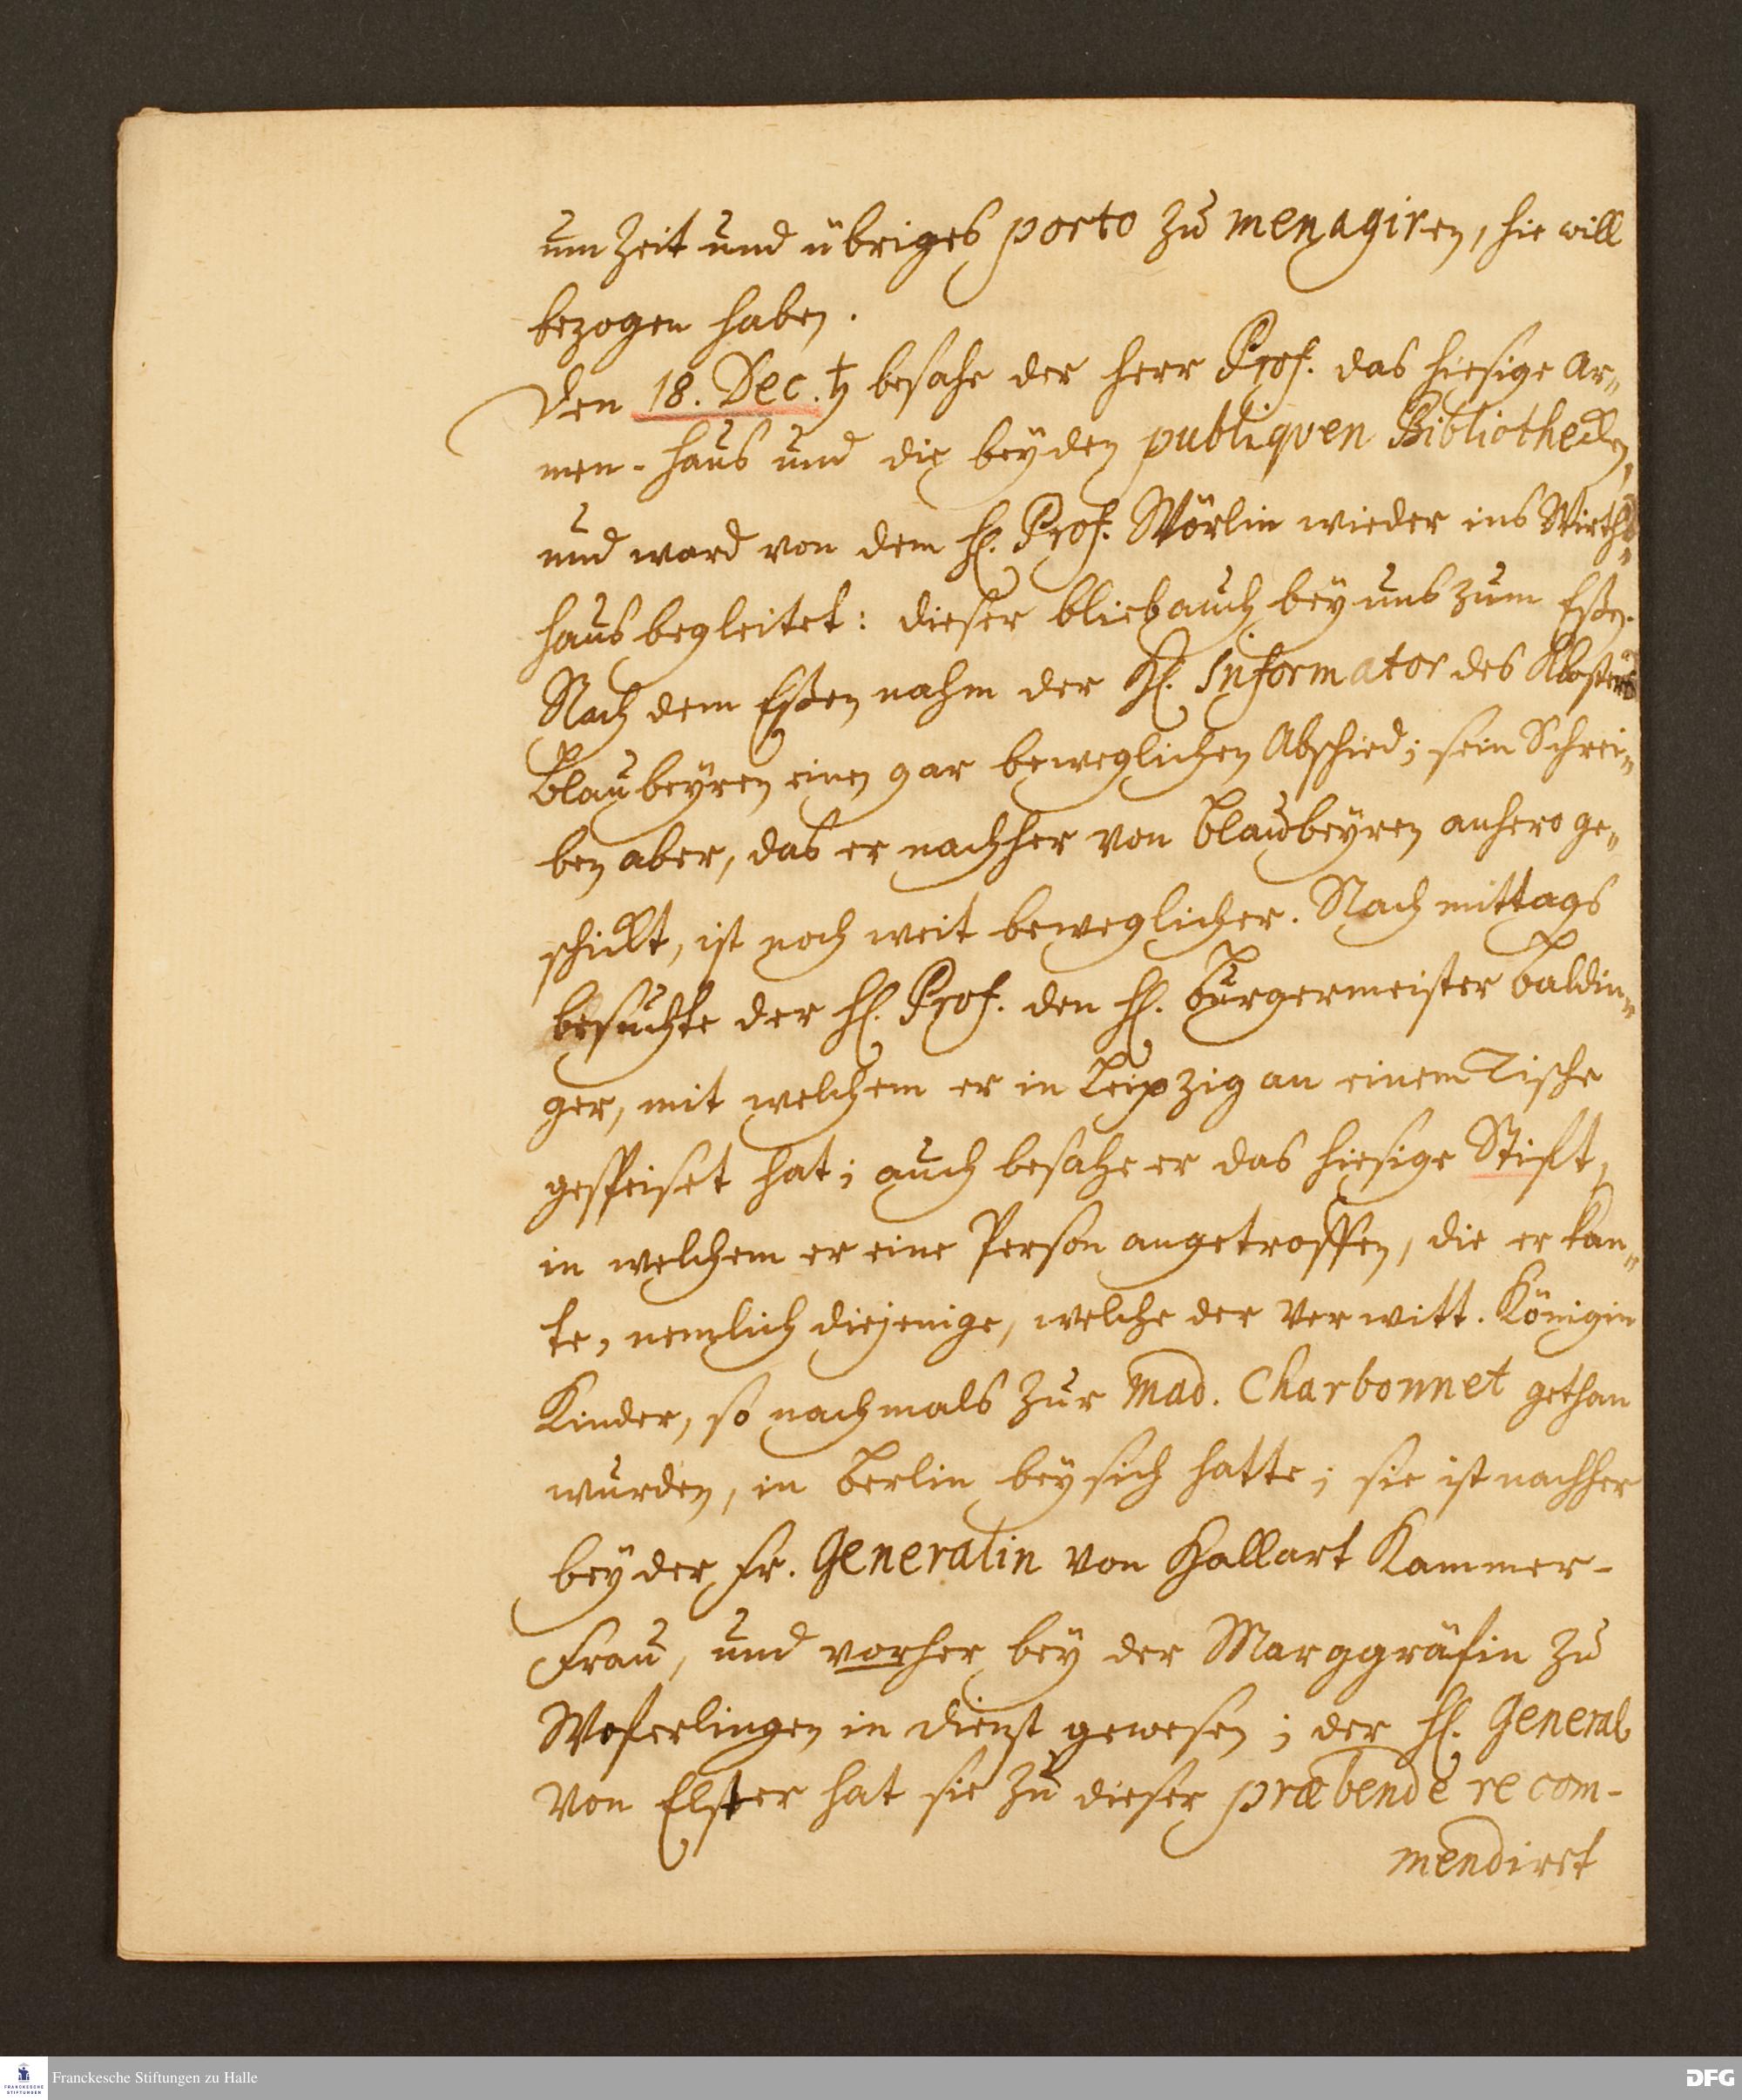 um Zeit und übriges porto zu menagiren, hie will
bezogen haben.
Den 18. Dec. ♄ besahe der Herr Prof. das hiesige Ar„
men-Haus und die beyden publiqven Bibliothecken,
und ward von dem H. Prof. Wörlin wieder ins Wirths„
haus begleitet: dieser blieb auch bey uns zum Eßen.
Nach dem Eßen nahm der H. Informator des Klosters
Blaubeyren einen gar beweglichen Abschied; sein Schrei„
ben aber, das er nachher von Blaubeyren anhero ge„
schickt, ist noch weit beweglicher. Nachmittags
besuchte der H. Prof. den H. Burgermeister Baldin„
ger, mit welchem er in Leipzig an einem Tische
gespeiset hat; auch besahe er das hiesige Stift,
in welchem er eine Person angetroffen, die er kan„
te, nemlich diejenige, welche der Verwitt. Königin
Kinder, so nachmals zur Mad. Charbonnet gethan
wurden, in Berlin bey sich hatte; sie ist nachher
bey der Fr. Generalin von Hallart Kammer-
Frau, und vorher bey der Marggräfin zu
Weferlingen in Dienst gewesen; der H. General
von Elster hat sie zu dieser præbende recom-
mendiret
Franckesche Stiftungen zu Halle
FRANCKESCHE
STIFTUNGEN
DFG